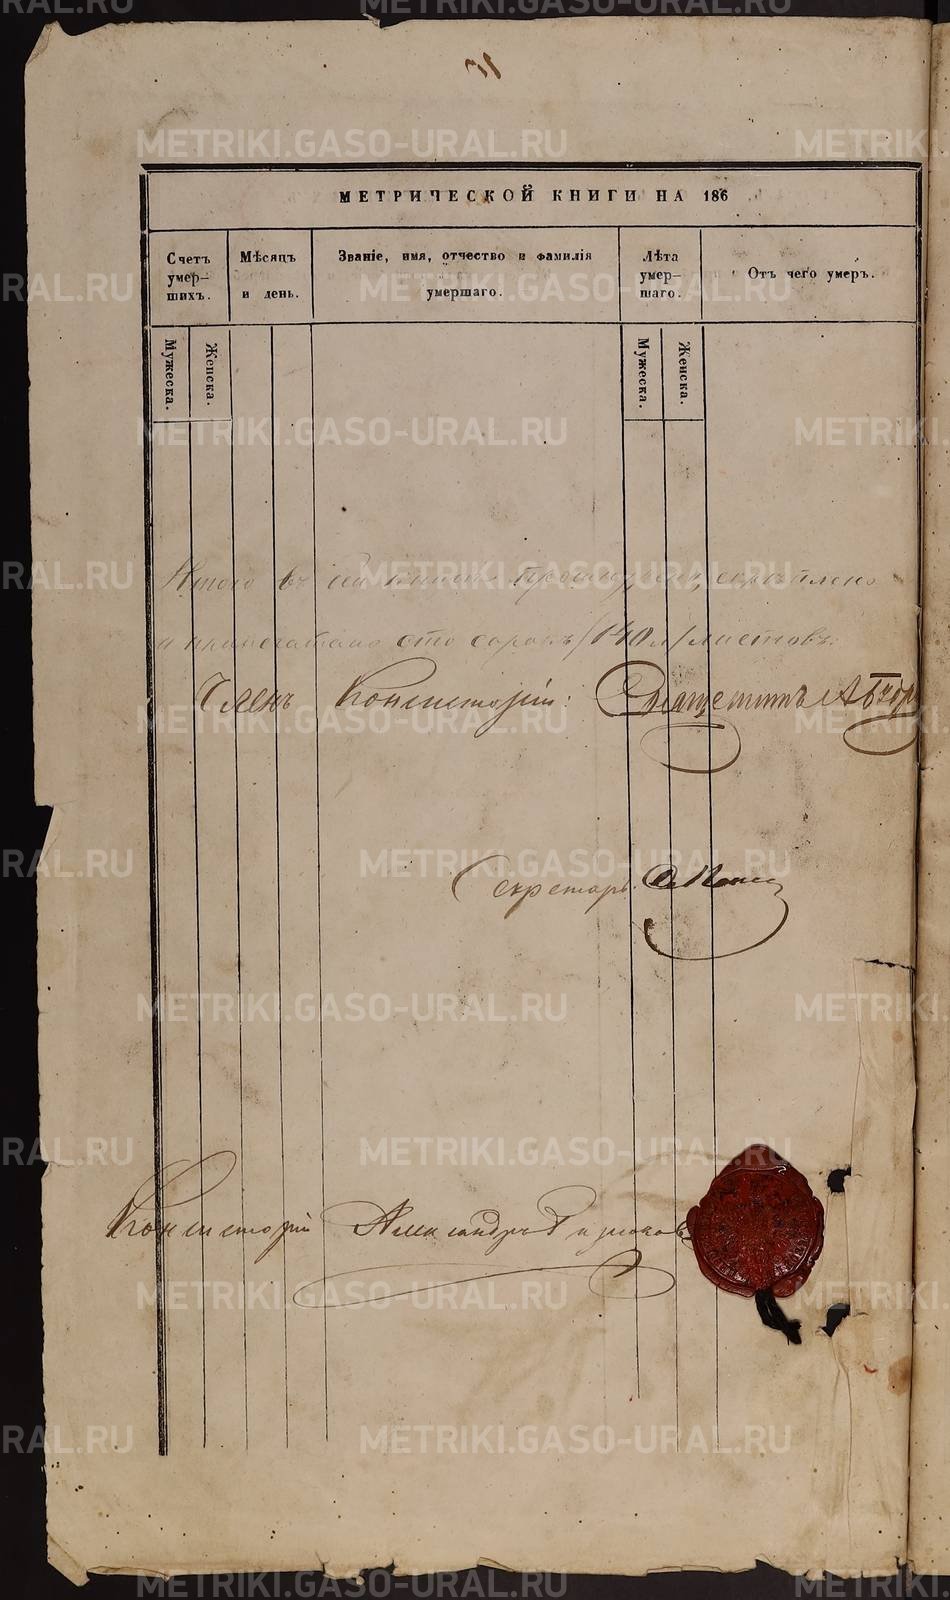 МЕТРИЧЕСКОЙ КНИГИ НА 186
Счетъ умер- шихъ.
Мѣсяцъ и день.
Званіе, имя, отчество и фамилія умершаго.
Лѣта умер- шаго.
Отъ чего умеръ.
Мужеска.
Женска.
Мужеска.
Женска.
Итого въ сей книгѣ прошнуровано, скрѣплено
и припечатано сто сорокъ /140 л/ листовъ.
Членъ Консисторіи: Священникъ А
Секретарь
Консисторіи Александръ
METRIKI.GASO-URAL.RU